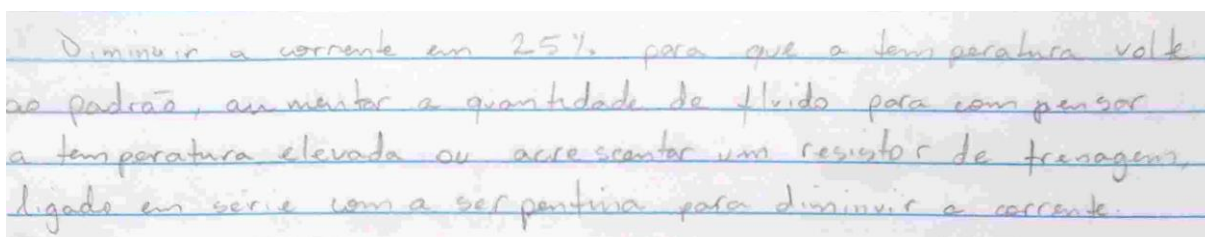 Diminuir a corrente em 25% para que a temperatura volte
ao padrão, aumentar a quantidade de fluido para compensar
a temperatura elevada ou acrescentar um resistor de frenagem,
ligado em série com a serpentina para diminuir a corrente.